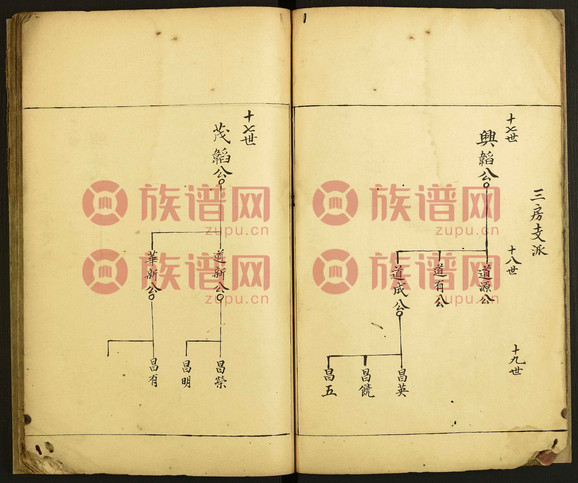 三房支派
十七世
十八世
十九世
興韜公
道源公
道有公
道成公
昌英
昌饒
昌五
十七世
茂韜公
道新公
華新公
昌榮
昌明
昌有
族谱网
zupu.cn
族谱网
zupu.cn
族谱网
zupu.cn
族谱网
zupu.cn